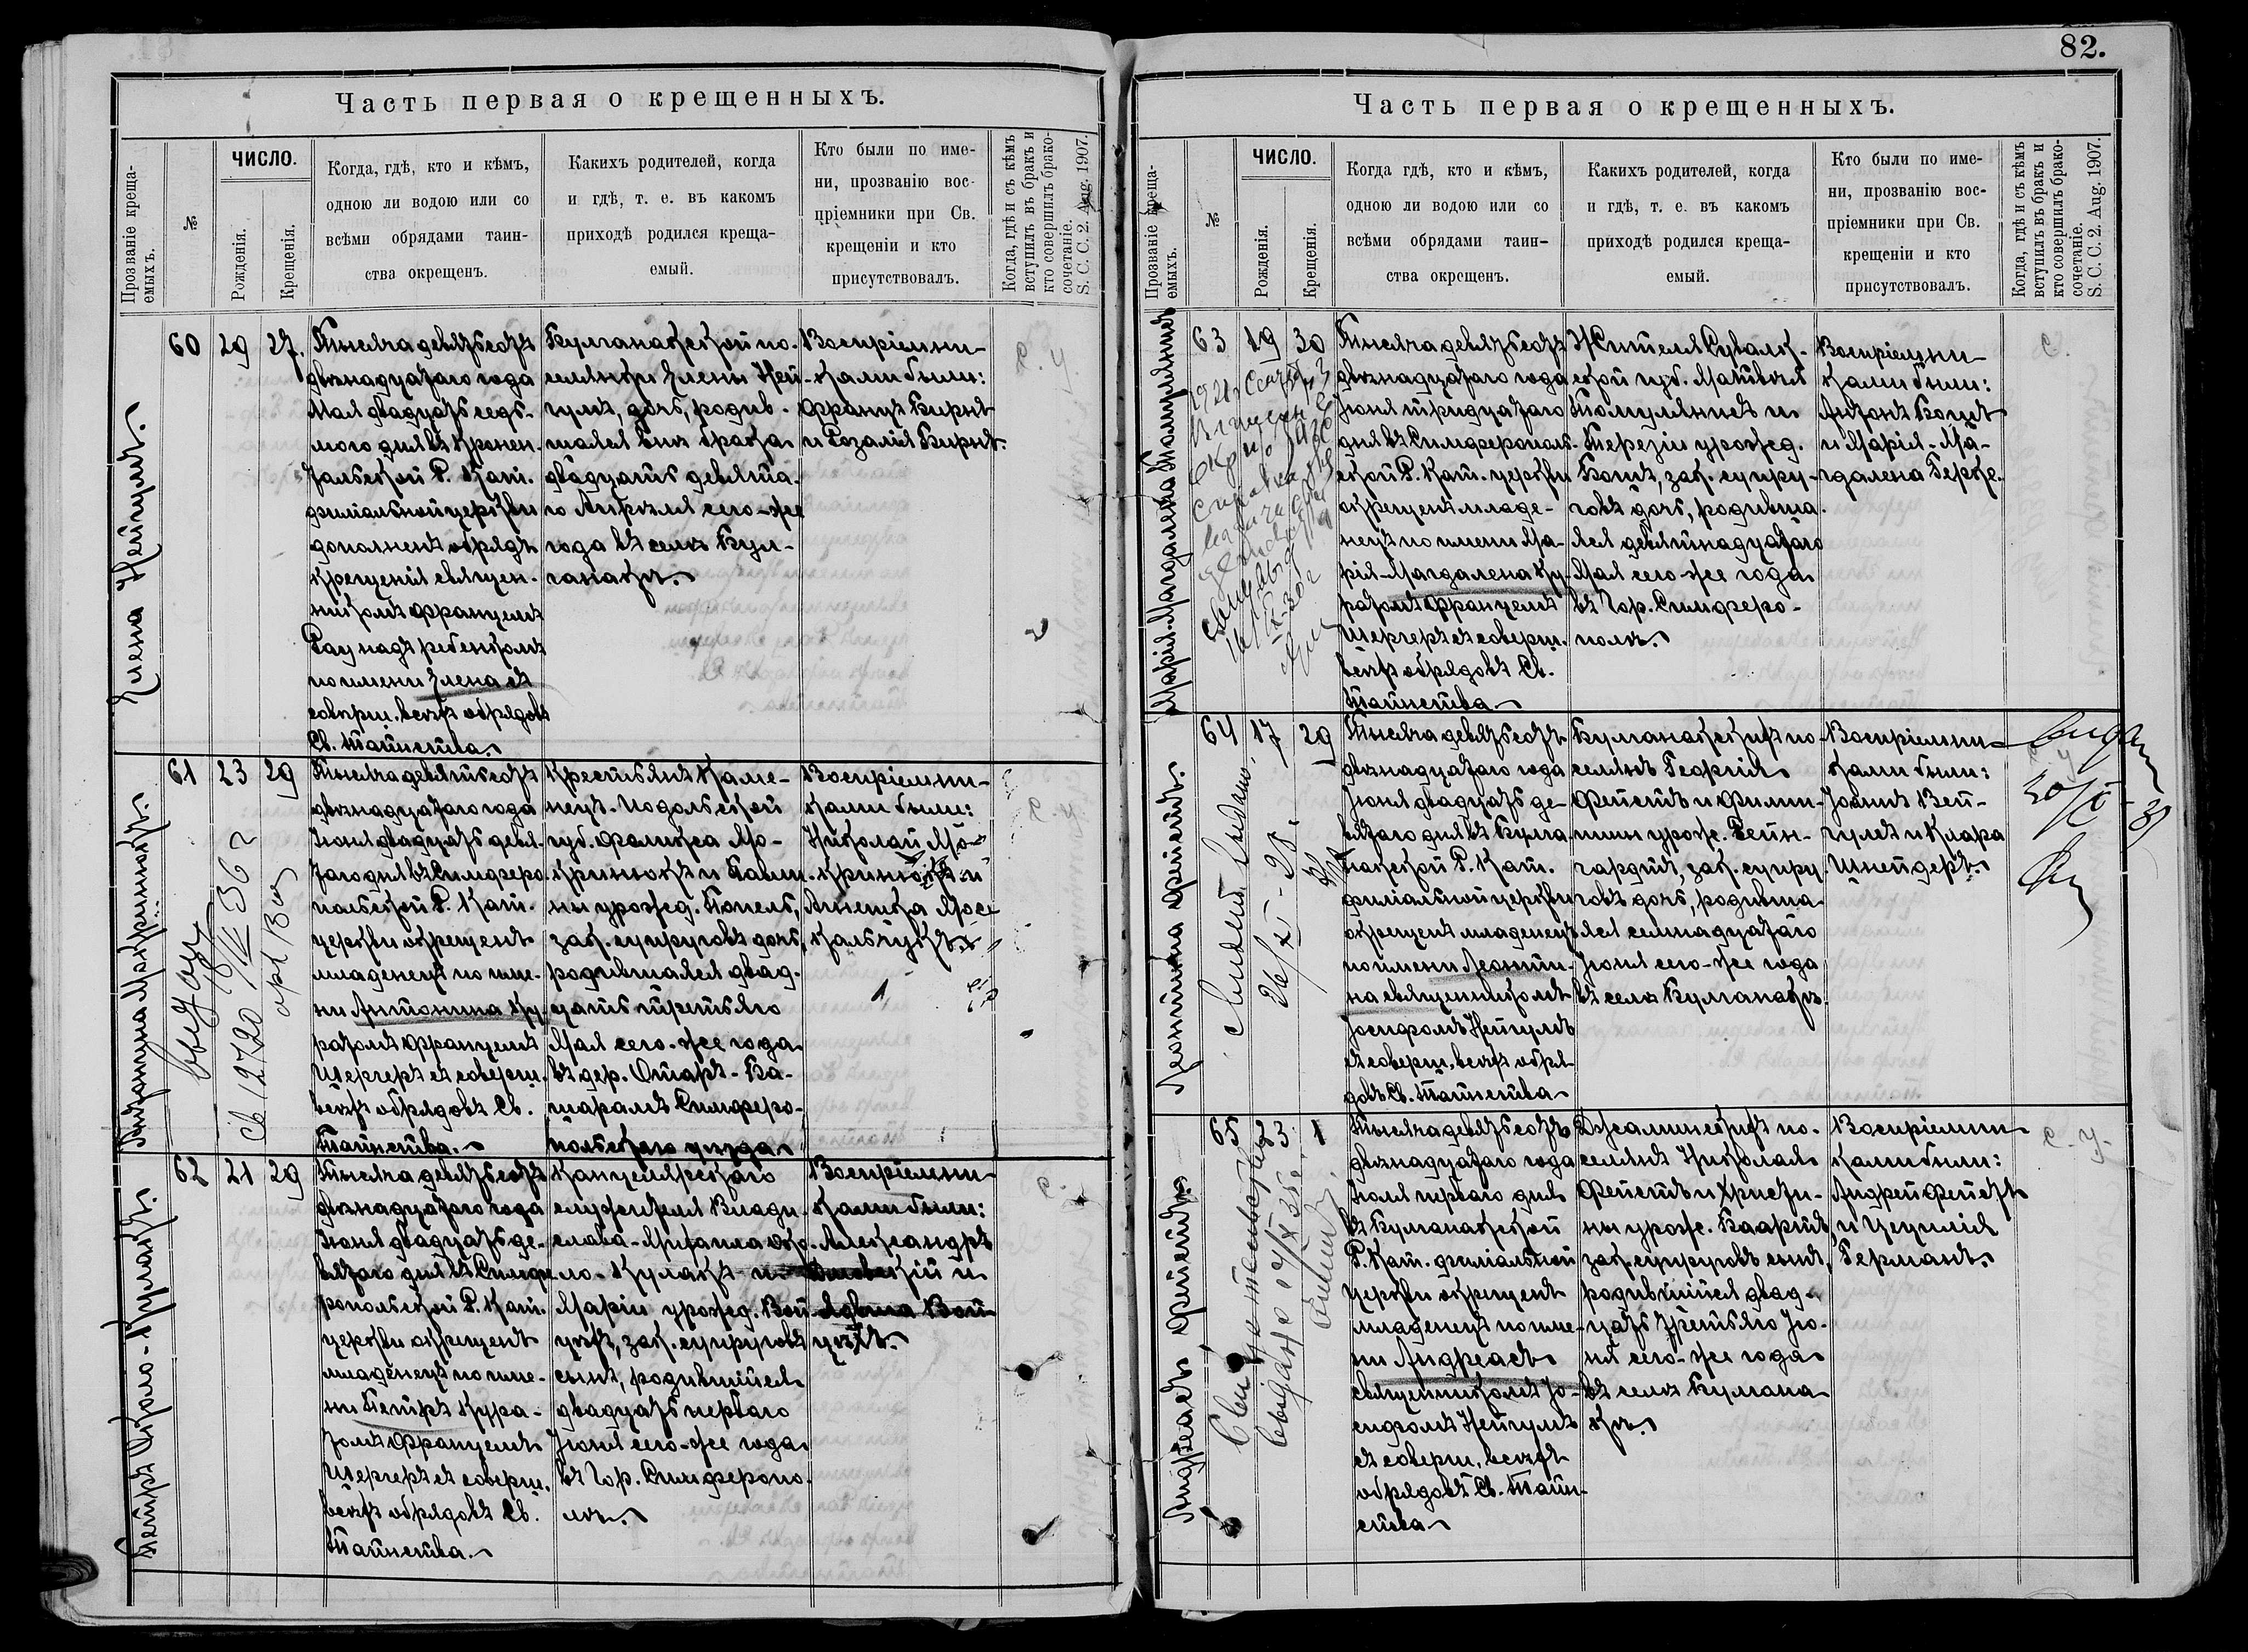 82.
Часть первая о крещенныхъ.
Прозваніе креща-
емыхъ.
№
ЧИСЛО.
Рожденія.
Крещенія.
Когда, гдѣ, кто и кѣмъ,
одною ли водою или со
всѣми обрядами таин-
ства окрещенъ.
Какихъ родителей, когда
и гдѣ, т. е. въ какомъ
приходѣ родился креща-
емый.
Кто были по име-
ни, прозванію вос-
пріемники при Св.
крещеніи и кто
присутствовалъ.
Когда, гдѣ и съ кѣмъ
вступилъ въ бракъ и
кто совершилъ брако-
сочетаніе.
S. C. C. 2. Aug. 1907.
Елена Нейгумъ.
60
29
27.
Тысяча девятьсотъ
двѣнадцатаго года
Мая двадцать седь-
мого дня въ Кронен-
тальской Р. Кат.
филіальной церкви
дополненъ обрядъ
крещенія священ-
никомъ Францемъ
Рау надъ ребенкомъ
по имени Елена съ
соверш. всѣхъ обрядовъ
Св. Таинства.
Булганакской по-
селянки Елены Ней-
гумъ, дочь, родив-
шаяся внѣ брака
двадцать девята-
го Апрѣля сего-же
года въ селѣ Бул-
ганакѣ.
Воспріемни-
ками были:
Францъ Бирнъ
и Розалія Бирнъ.
с. у.
Антонина Мокринокъ.
61
23
29
Тысяча девятьсотъ
двѣнадцатаго года
Іюня двадцать девя-
таго дня въ Симферо-
польской Р. Кат.
церкви окрещенъ
младенецъ по име-
ни Антонина Ку-
ратомъ Францемъ
Шергеръ съ соверш.
всѣхъ обрядовъ Св.
Таинства.
Крестьянъ Каме-
нец.-Подольской
губ. Феликса Мо-
кринокъ и Паули-
ны урожд. Попель,
зак. супруговъ дочь,
родившаяся двад-
цать третьяго
Мая сего-же года
въ дер. Отаръ-Ба-
шарамъ Симферо-
польскаго уѣзда
Воспріемни-
ками были:
Николай Мо-
кринокъ и
Анелька Мос-
кальчукъ
с. у.
св 12720
Петръ Около-Кулакъ.
62
21
29
Тысяча девятьсотъ
двѣнадцатаго года
Іюня двадцать де-
вятаго дня въ Симфе-
ропольской Р. Кат.
церкви окрещенъ
младенецъ по име-
ни Петръ Кура-
томъ Францемъ
Шергеръ съ соверш.
всѣхъ обрядовъ Св.
Таинства.
Канцелярскаго
служителя Влади-
слава-Михаила Око-
ло-Кулакъ и
Маріи урожд. Вой-
цехъ, зак. супруговъ
сынъ, родившійся
двадцать перваго
Іюня сего-же года
въ Гор. Симферопо-
лѣ.
Воспріемни-
ками были:
Александръ
с.
Часть первая о крещенныхъ.
Прозваніе креща-
емыхъ.
№
ЧИСЛО.
Рожденія.
Крещенія.
Когда гдѣ, кто и кѣмъ,
одною ли водою или со
всѣми обрядами таин-
ства окрещенъ.
Какихъ родителей, когда
и гдѣ, т. е. въ какомъ
приходѣ родился креща-
емый.
Кто были по име-
ни, прозванію вос-
пріемники при Св.
крещеніи и кто
присутствовалъ.
Когда, гдѣ и съ кѣмъ
вступилъ въ бракъ и
кто совершилъ брако-
сочетаніе.
S. C. C. 2. Aug. 1907.
Марія-Магдалена
63
19
30
Тысяча девятьсотъ
двѣнадцатаго года
Іюня тридцатаго
дня въ Симферополь-
ской Р. Кат. церкви
окрещенъ младе-
нецъ по имени Ма-
рія-Магдалена Ку-
ратомъ Францемъ
Шергеръ съ соверш.
всѣхъ обрядовъ Св.
Таинства.
Жителя Сувалк-
ской губ. Матвѣя
и
Терезіи урожд.
Боцъ, зак. супру-
говъ дочь, родивша-
яся девятнадцатаго
Мая сего-же года
въ Гор. Симферо-
полѣ.
Воспріемни-
ками были:
Антонъ Боцъ
и Марія-Ма-
гдалена Берке.
с.
Леонтина Фейстъ.
64
17
29
Тысяча девятьсотъ
двѣнадцатаго года
Іюня двадцать де-
вятаго дня въ Булга-
накской Р. Кат.
филіальной церкви
окрещенъ младенецъ
по имени Леонти-
на священникомъ
Іосифомъ Нейгумъ
съ соверш. всѣхъ обря-
довъ Св. Таинства
Булганакскихъ по-
селянъ Георгія
Фейстъ и Филип-
пины урожд. Рейн-
гардтъ, зак. супру-
говъ дочь, родивша-
яся семнадцатаго
Іюня сего-же года
въ селѣ Булганакѣ.
Воспріемни-
ками были:
Іоаннъ Вей-
гумъ и Клара
Шнейдеръ.
Андреасъ Фейстъ.
65
23
1
Тысяча девятьсотъ
двѣнадцатаго года
Іюля перваго дня
въ Булганакской
Р. Кат. филіальной
церкви окрещенъ
младенецъ по име-
ни Андреасъ
священникомъ Іо-
сифомъ Нейгумъ
съ соверш. всѣхъ
обрядовъ Св. Таин-
ства
поселянъ Николая
Фейстъ и Христи-
ны урожд.
зак. супруговъ сынъ,
родившійся двад-
цать третьяго Ію-
ня сего-же года
въ селѣ Булгана-
кѣ.
Воспріемни-
ками были:
Андрей Фейстъ
и Цецилія
Германъ.
с. у.